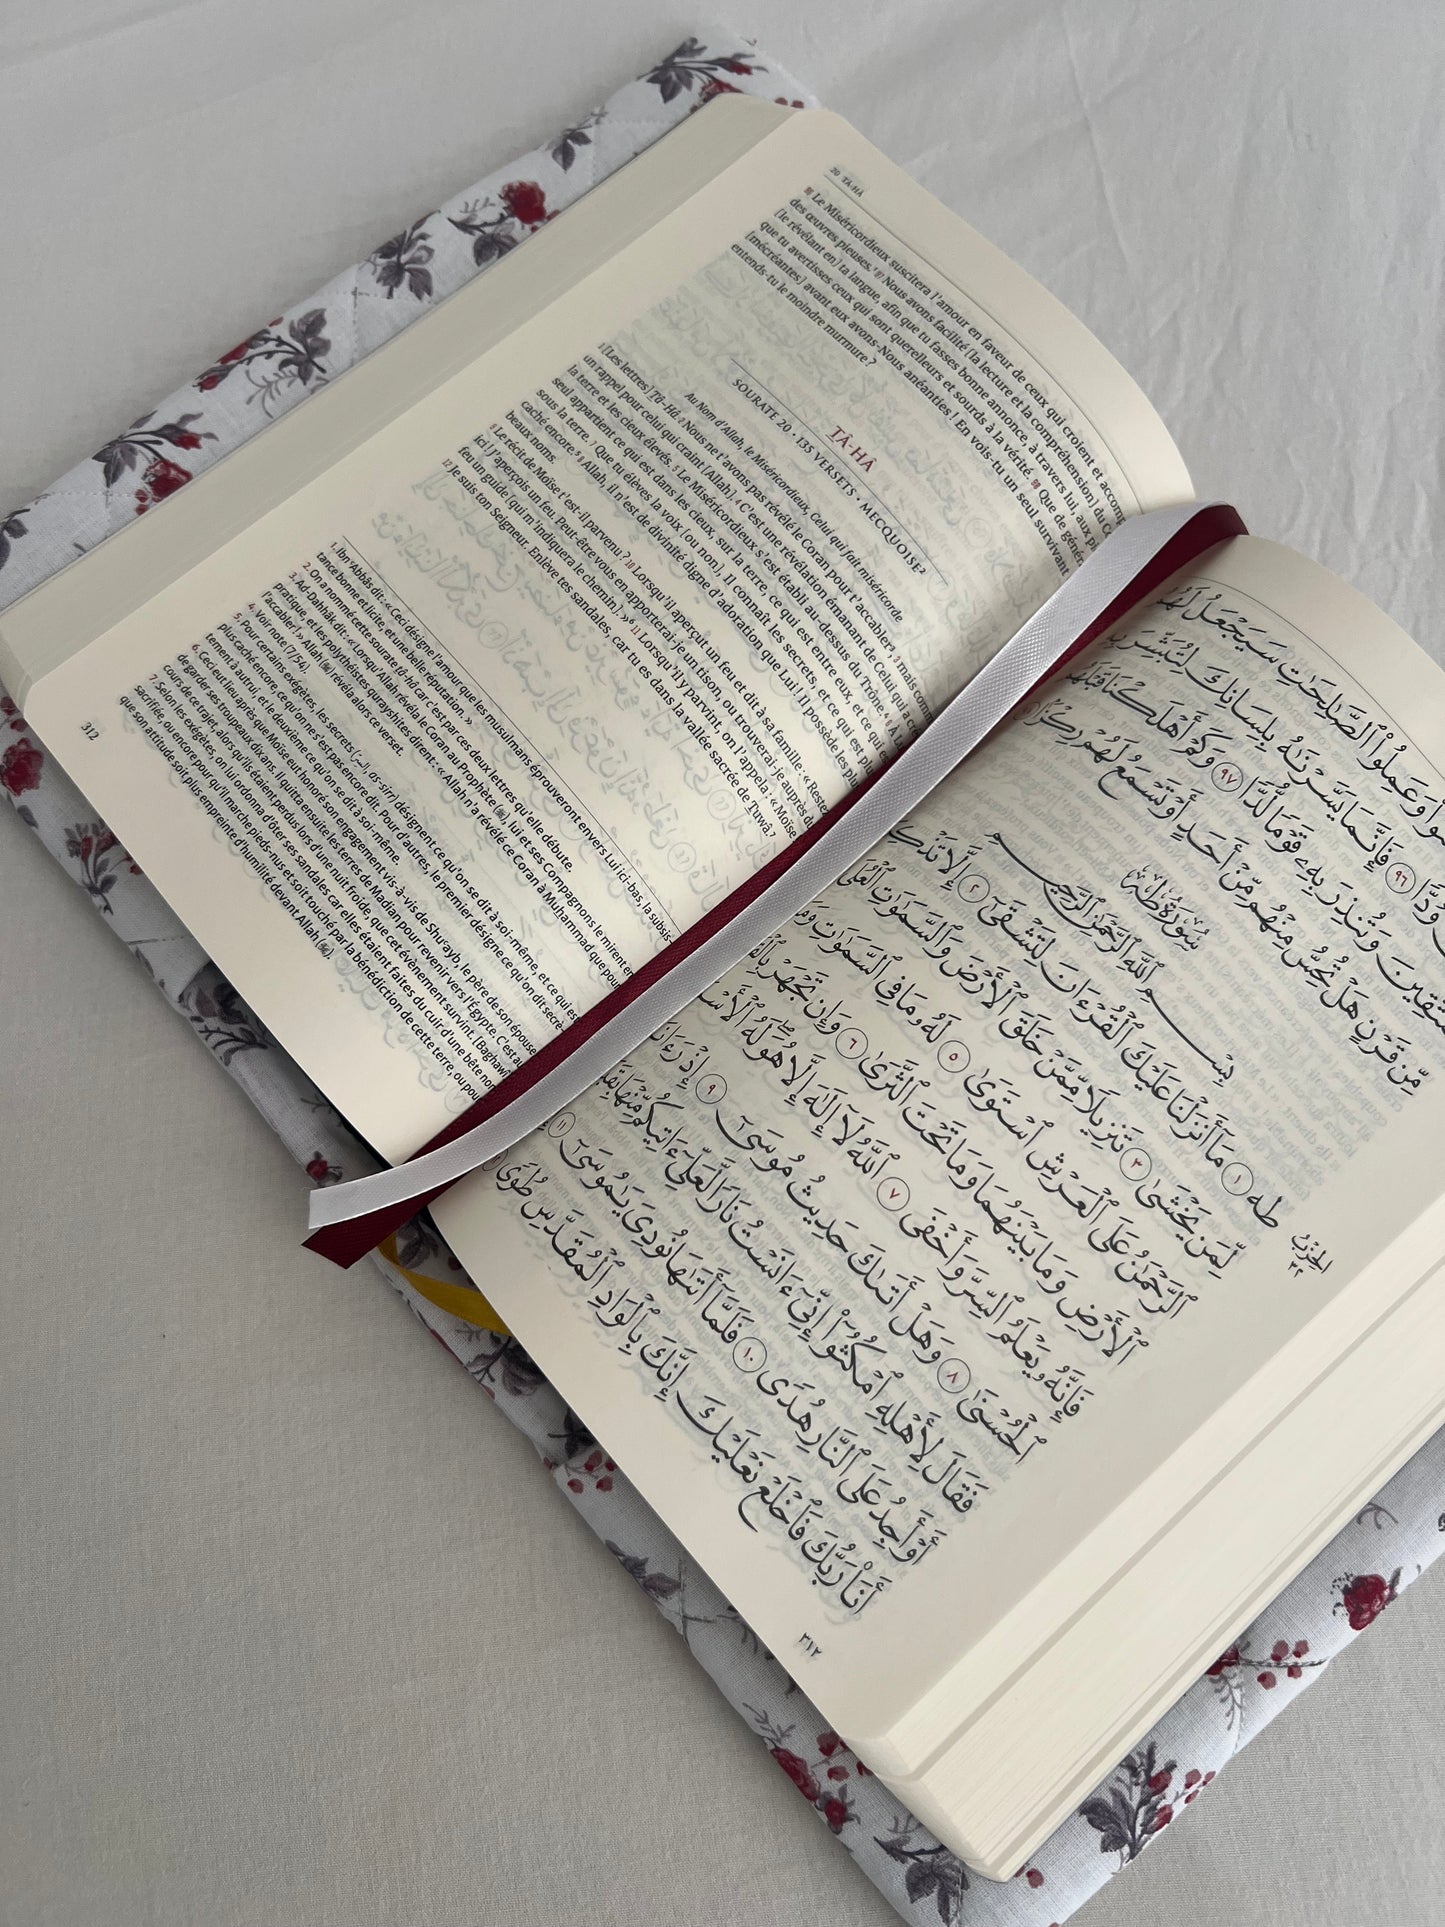 20 TÂ-HÂ
96 Le Miséricordieux suscitera l'amour en faveur de ceux qui croient et
des œuvres pieuses.¹ 97 Nous avons facilité [la lecture et la compréhension] du
[le révélant en] ta langue, afin que tu fasses bonne annonce, à travers lui, aux
que tu avertisses ceux qui sont querelleurs et sourds à la vérité. 98 Que de
[mécréantes] avant eux avons-Nous anéanties ! En vois-tu un seul survivant
entends-tu le moindre murmure ?
TÂ-HÂ
SOURATE 20 • 135 VERSETS • MECQUOISE²
Au Nom d'Allah, le Miséricordieux, Celui qui fait miséricorde
1 [Les lettres] Tâ-Hâ. 2 Nous ne t'avons pas révélé le Coran pour t'accabler³, 3 mais comme
un rappel pour celui qui craint [Allah]. 4 C'est une révélation émanant de Celui qui a
la terre et les cieux élevés. 5 Le Miséricordieux s'est établi au-dessus du Trône.⁴ 6 À
seul appartient ce qui est dans les cieux, sur la terre, ce qui est entre eux, et ce qui est
sous la terre. 7 Que tu élèves la voix [ou non], Il connaît les secrets, et ce qui est plus
caché encore.⁵ 8 Allah, il n'est de divinité digne d'adoration que Lui ! Il possède les plus
beaux noms.
9 Le récit de Moïse t'est-il parvenu ? 10 Lorsqu'il aperçut un feu et dit à sa famille : « Restez
ici ! J'aperçois un feu. Peut-être vous en apporterai-je un tison, ou trouverai-je auprès du
feu un guide [qui m'indiquera le chemin]. »⁶ 11 Lorsqu'il y parvint, on l'appela : « Moïse
12 Je suis ton Seigneur. Enlève tes sandales, car tu es dans la vallée sacrée de Tuwâ.⁷
1. Ibn 'Abbâs dit : « Ceci désigne l'amour que les musulmans éprouveront envers Lui ici-bas, la subsis-
tance bonne et licite, et une belle réputation. »
2. On a nommé cette sourate tâ-hâ car c'est par ces deux lettres qu'elle débute.
3. Ad-Dahhâk dit : « Lorsqu'Allah révéla le Coran au Prophète (ﷺ), lui et ses Compagnons le mirent en
pratique, et les polythéistes qurayshites dirent : « Allah n'a révélé ce Coran à Muhammad que pour
l'accabler ! » Allah (ﷻ) révéla alors ce verset.
4. Voir note (7/54).
5. Pour certains exégètes, les secrets (السر, as-sirr) désignent ce qu'on se dit à soi-même, et ce qui est
plus caché encore, ce qu'on ne s'est pas encore dit. Pour d'autres, le premier désigne ce qu'on dit secrè-
tement à autrui, et le deuxième ce qu'on se dit à soi-même.
6. Ceci eut lieu après que Moïse eut honoré son engagement vis-à-vis de Shu'ayb, le père de son épouse
de garder ses troupeaux dix ans. Il quitta ensuite les terres de Madian pour revenir vers l'Égypte. C'est au
cours de ce trajet, alors qu'ils étaient perdus lors d'une nuit froide, que cet évènement survint. [Baghawî
7. Selon les exégètes, on lui ordonna d'ôter ses sandales car elles étaient faites du cuir d'une bête non
sacrifiée, ou encore pour qu'il marche pieds-nus et soit touché par la bénédiction de cette terre, ou pour
que son attitude soit plus empreinte d'humilité devant Allah (ﷻ).
312
وَعَمِلُواْ ٱلصَّٰلِحَٰتِ سَيَجْعَلُ لَهُمُ
وُدًّا ٩٦ فَإِنَّمَا يَسَّرْنَٰهُ بِلِسَانِكَ لِتُبَشِّرَ بِهِ
وَتُنذِرَ بِهِۦ قَوْمًا لُّدًّا ٩٧ وَكَمْ أَهْلَكْنَا قَبْلَهُم
مِّن قَرْنٍ هَلْ تُحِسُّ مِنْهُم مِّنْ أَحَدٍ أَوْ تَسْمَعُ لَهُمْ رِكْزًا
سُورَةُ طه
بِسْمِ ٱللَّهِ ٱلرَّحْمَٰنِ ٱلرَّحِيمِ
طه ١ مَآ أَنزَلْنَا عَلَيْكَ ٱلْقُرْءَانَ لِتَشْقَىٰٓ ٢ إِلَّا تَذْكِرَةً
لِّمَن يَخْشَىٰ ٣ تَنزِيلًا مِّمَّنْ خَلَقَ ٱلْأَرْضَ وَٱلسَّمَٰوَٰتِ ٱلْعُلَى
ٱلرَّحْمَٰنُ عَلَى ٱلْعَرْشِ ٱسْتَوَىٰ ٥ لَهُۥ مَا فِى ٱلسَّمَٰوَٰتِ وَمَا
ٱلْأَرْضِ وَمَا بَيْنَهُمَا وَمَا تَحْتَ ٱلثَّرَىٰ ٦ وَإِن تَجْهَرْ بِٱلْقَوْلِ
فَإِنَّهُۥ يَعْلَمُ ٱلسِّرَّ وَأَخْفَى ٧ ٱللَّهُ لَآ إِلَٰهَ إِلَّا هُوَ لَهُ ٱلْأَسْمَآءُ
ٱلْحُسْنَىٰ ٨ وَهَلْ أَتَىٰكَ حَدِيثُ مُوسَىٰٓ ٩ إِذْ رَءَا نَارًا
فَقَالَ لِأَهْلِهِ ٱمْكُثُوٓاْ إِنِّىٓ ءَانَسْتُ نَارًا لَّعَلِّىٓ ءَاتِيكُم مِّنْهَا بِقَبَسٍ
أَوْ أَجِدُ عَلَى ٱلنَّارِ هُدًى ١٠ فَلَمَّآ أَتَىٰهَا نُودِىَ يَٰمُوسَىٰٓ ١١
أَنَا۠ رَبُّكَ فَٱخْلَعْ نَعْلَيْكَ إِنَّكَ بِٱلْوَادِ ٱلْمُقَدَّسِ طُوًى
الحزب
٣٢
٣١٢